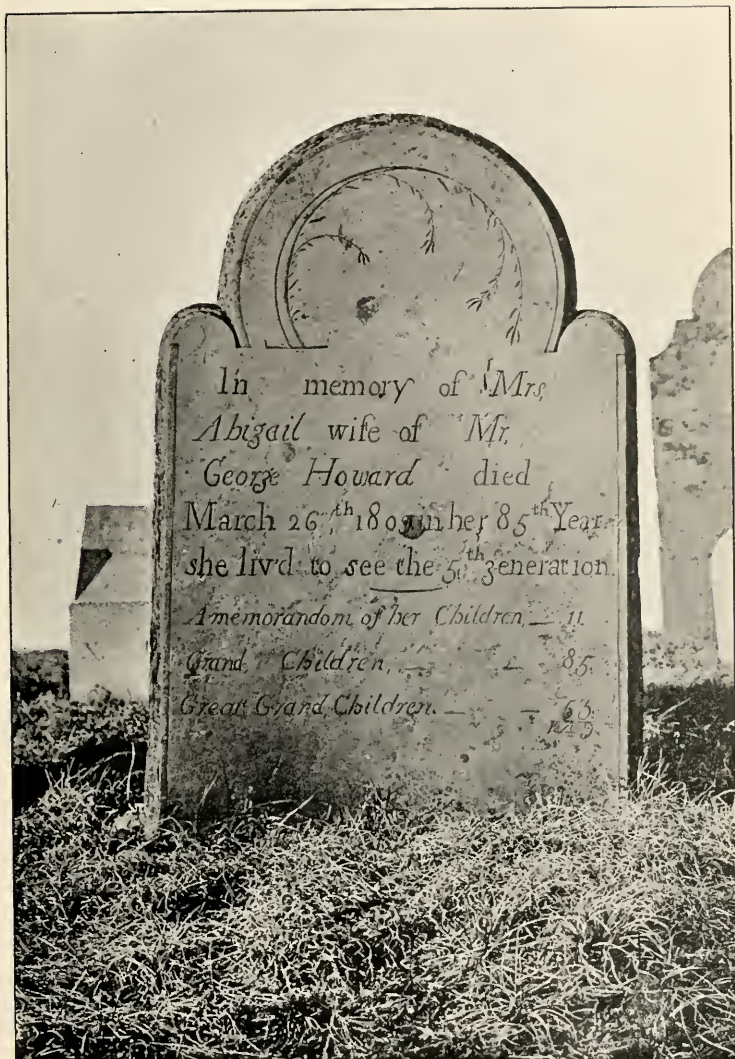 In memory of Mrs,
Abigail wife of Mr,
George Howard died
March 26,th in her 85th Year
she liv'd to see the 5th generation.
A memorandom of her Children, — 11.
Grand, Children, — — 85.
Great Grand, Children. — —